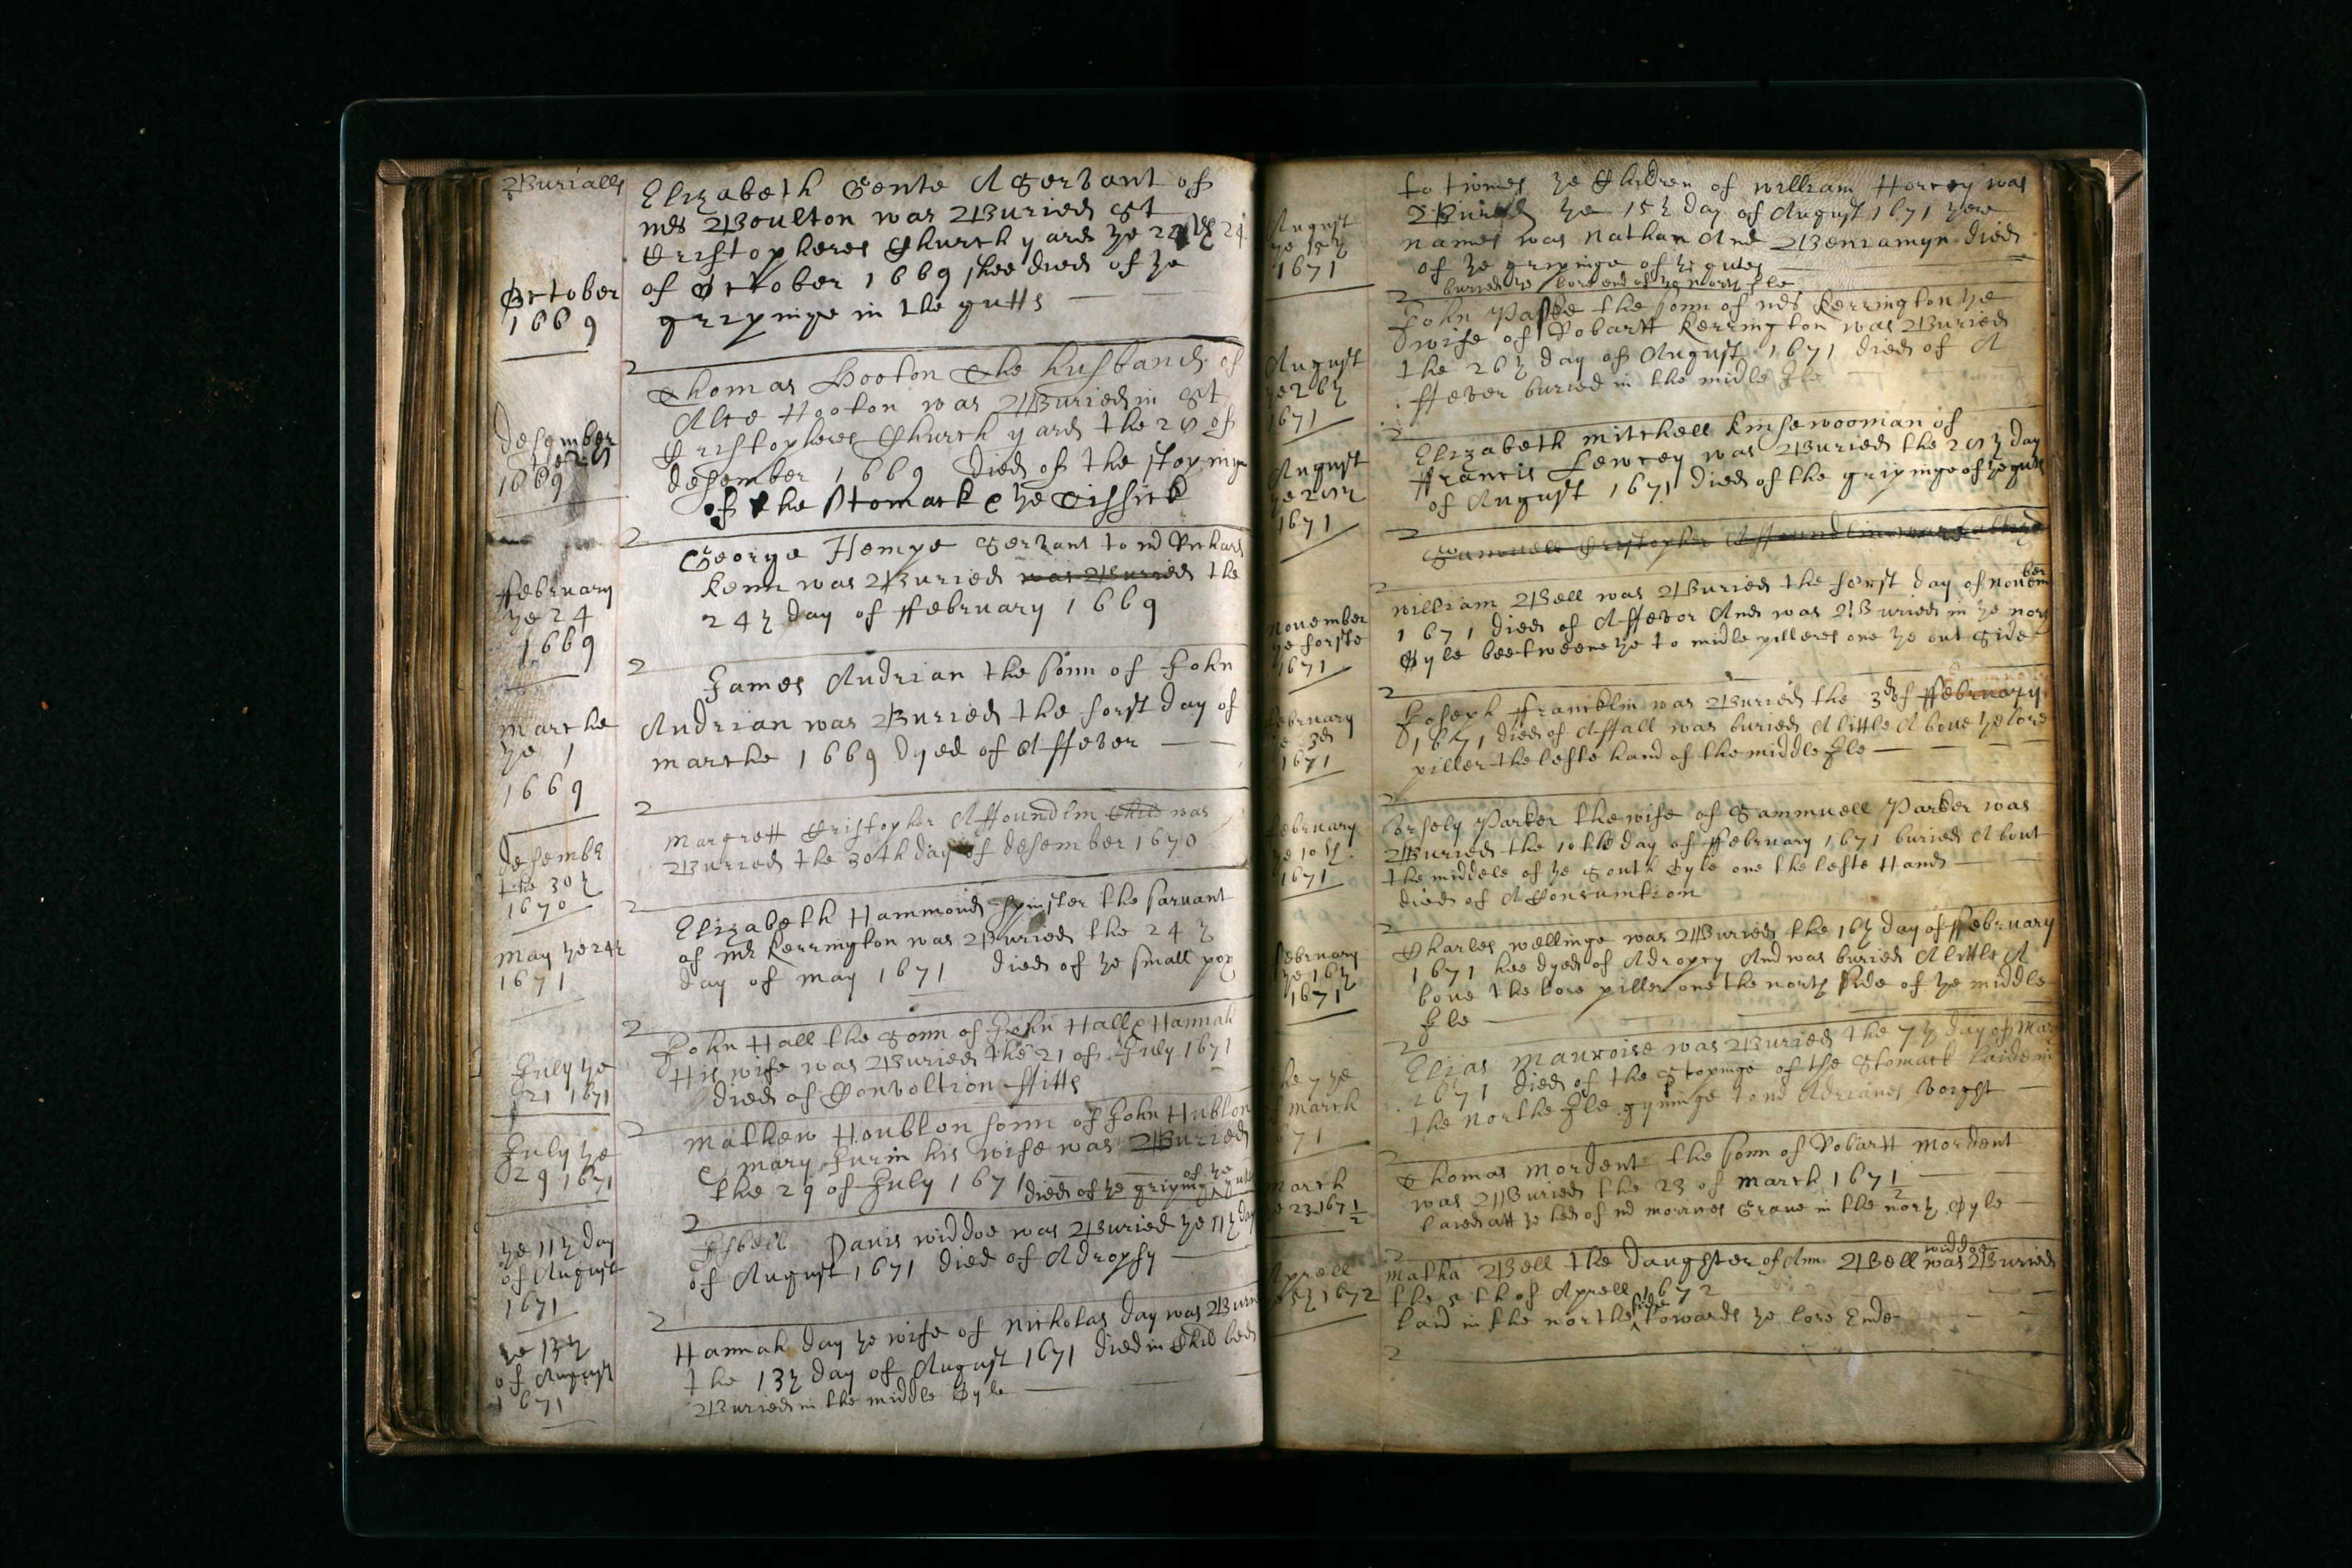 Burialls
Elizabeth Gente A Servant of
mrs Boulton was Buried St
Cristopheres Church yard ye 24
October
1669
of October 1669 shee died of ye
gripinge in the gutts
Thomas Hooton the husband of
Alce Hooton was Buried in St
Cristopheres Church yard the 25 of
desember
ye 25
1669
desember 1669 Died of the stopinge
of the Stomack & ye Tissick
George Hempe Servant to mr Richard
Kenn was Buried was Buried the
ffebruary
ye 24
1669
24th day of ffebruary 1669
James Audrian the sonn of John
marche
ye 1
1669
Audrian was Buried the forst day of
marche 1669 Dyed of A ffever
Margrett Cristopher A ffoundlin Child was
Buried the 30th day of desember 1670
desembr
the 30th
1670
Elizabeth Hammond Spinster the sarvant
of mr Kerrington was Buried the 24th
day of may 1671 died of ye small pox
may ye 24th
1671
John Hall the Sonn of John Hall & Hannah
His wife was Buried the 21 of July 1671
died of Convoltion ffitts
July ye
21 1671
Mathew Houblon sonn of John Hublon
& mary Jurin his wife was Buried
the 29 of July 1671 died of ye gripinge of ye guts
July ye
29 1671
Isbell Davis widdoe was Buried ye 11th day
of August 1671 died of A dropsy
ye 11th day
of August
1671
Hannah day ye wife of Nicholas day was Buri
the 13th day of August 1671 died in Child bed
Buried in the middle Ayle
ye 13th
of August
1671
to twines ye Children of william Horsey was
Buried ye 15th day of August 1671 yere
names was Nathan And Beniamyn died
of ye gripinge of ye gutes
buried ye lore end of ye north Ile
August
ye 15th
1671
John the sonn of mrs Kerrington ye
wife of Robartt Kerrington was Buried
the 26th day of August 1671 died of A
ffever buried in the midle Ile
August
ye 26th
1671
Elizabeth Mitchell kinsewooman of
ffrancis Lewcey was Buried the 25th day
of August 1671 died of the gripinge of ye guts
August
ye 25th
1671
Sammuell Cristopher A ffoundlin
william Bell was Buried the forst day of november
1671 died of A ffevor And was Buried in ye nor
Ayle beetweene ye to midle pilleres one ye out Side
november
ye forste
1671
Joseph ffrancklin was Buried the 3d of ffebruary
1671 died of A ffall was buried A little A bove ye lore
piller the lefte hand of the middle Ile
ebruary
ye 3d
1671
Parker the wife of Sammuell Parker was
Buried the 10th day of ffebruary 1671 buried About
the middele of ye South Ayle one the lefte Hand
died of A Consumtion
ebruary
ye 10th
1671
Charles wellinge was Buried the 16th day of ffebruary
1671 hee dyed of A dropcy And was buried A little A
bove the lore piller one the north side of ye middle
Ile
february
ye 16th
1671
Elias Mauroise was Buried the 7th day of Mar
1671 died of the Stopinge of the Stomack laide in
the northe Ile to mr Adrianes
he 7 ye
march
71
Thomas Mordent the sonn of Robartt Mordent
was Buried the 23 of march 1671/2
laied att ye hed of mr Grave in the north Ayle
march
e 23 1671/2
Matha Bell the daughter of Ann Bell widdoe was Buried
the 5th of Aprell 1672
laid in the northe side towards ye lore Ende
Aprell
e 5th 1672